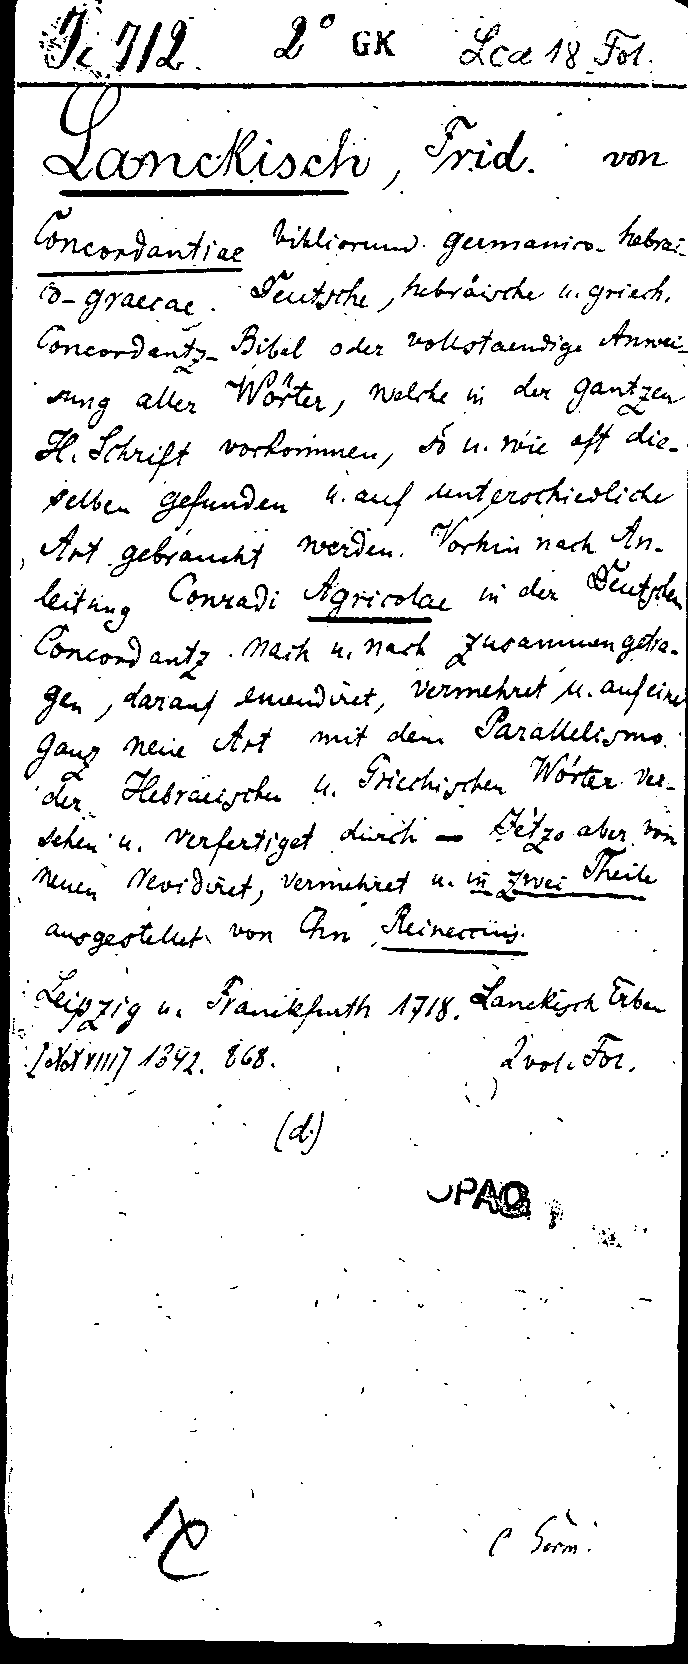 Jc 712. 2° GK Lca 18 Fol.
Lanckisch, Frid. von
Concordantiae bibliorum germanico-hebrai-
co-graecae. Deutsche, hebräische u. griech.
Concordantz-Bibel oder vollstaendige Anwei-
sung aller Wörter, welche in der gantzen
H. Schrift vorkommen, so u. wie oft die-
selben gefunden u. auf unterschiedliche
Art gebraucht werden. Vorhin nach An-
leitung Conradi Agricolae in der Deutschen
Concordantz nach u. nach zusammengetra-
gen, darauf emendiret, vermehret u. auf eine
ganz neue Art mit dem Parallelismo
der Hebraeischen u. Griechischen Wörter ver-
sehen u. verfertiget durch — Jetzo aber von
neuen revidiret, vermehret u. in zwei Theile
ausgestellet von Chn Reineccius.
Leipzig u. Franckfurth 1718. Lanckisch Erben
1342. 868. 2 vol. Fol.
(d.)
OPAC